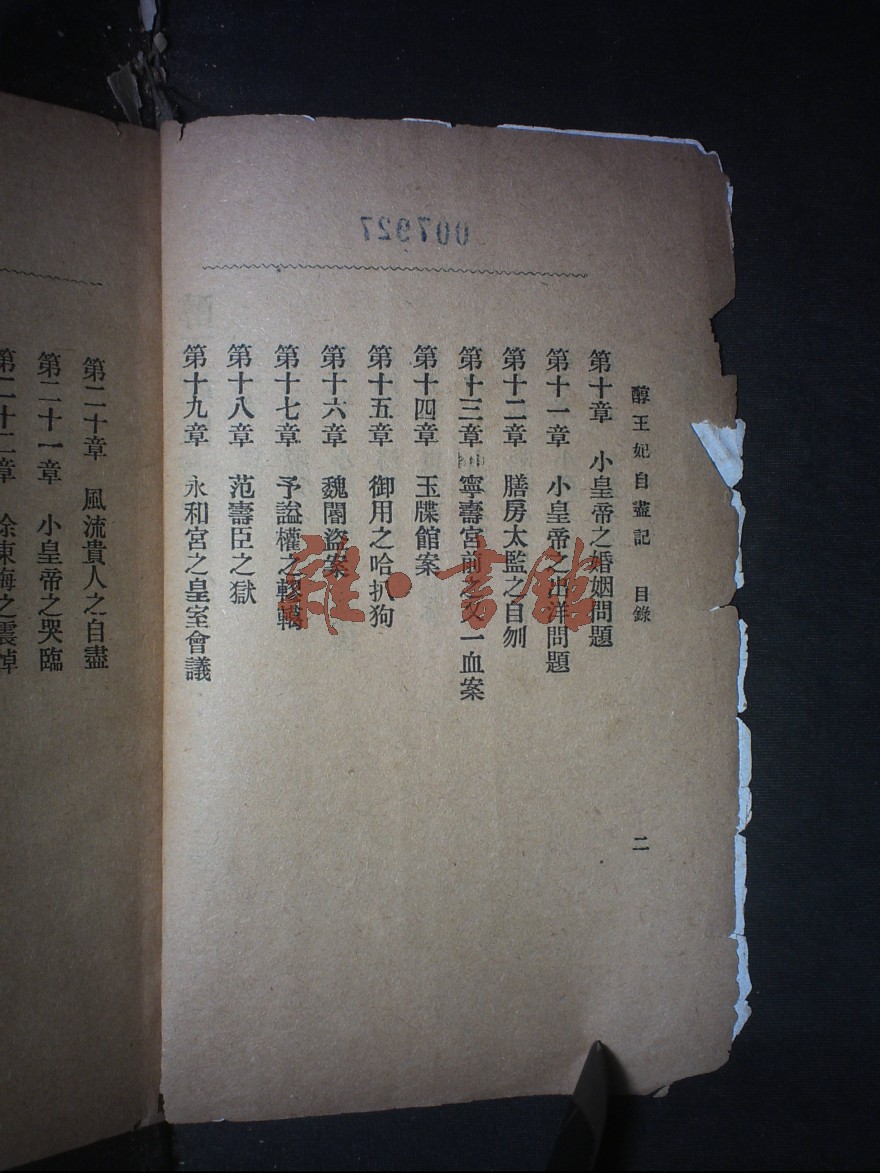 007927
醇王妃自盡記 目錄 二
第十章 小皇帝之婚姻問題
第十一章 小皇帝之出洋問題
第十二章 膳房太監之自刎
第十三章 寧壽宮前之又一血案
第十四章 玉牒館案
第十五章 御用之哈趴狗
第十六章 魏閹盜案
第十七章 予諡權之轇轕
第十八章 范壽臣之獄
第十九章 永和宮之皇室會議
第二十章 風流貴人之自盡
第二十一章 小皇帝之哭臨
第二十二章 徐東海之震悼
雜·書館